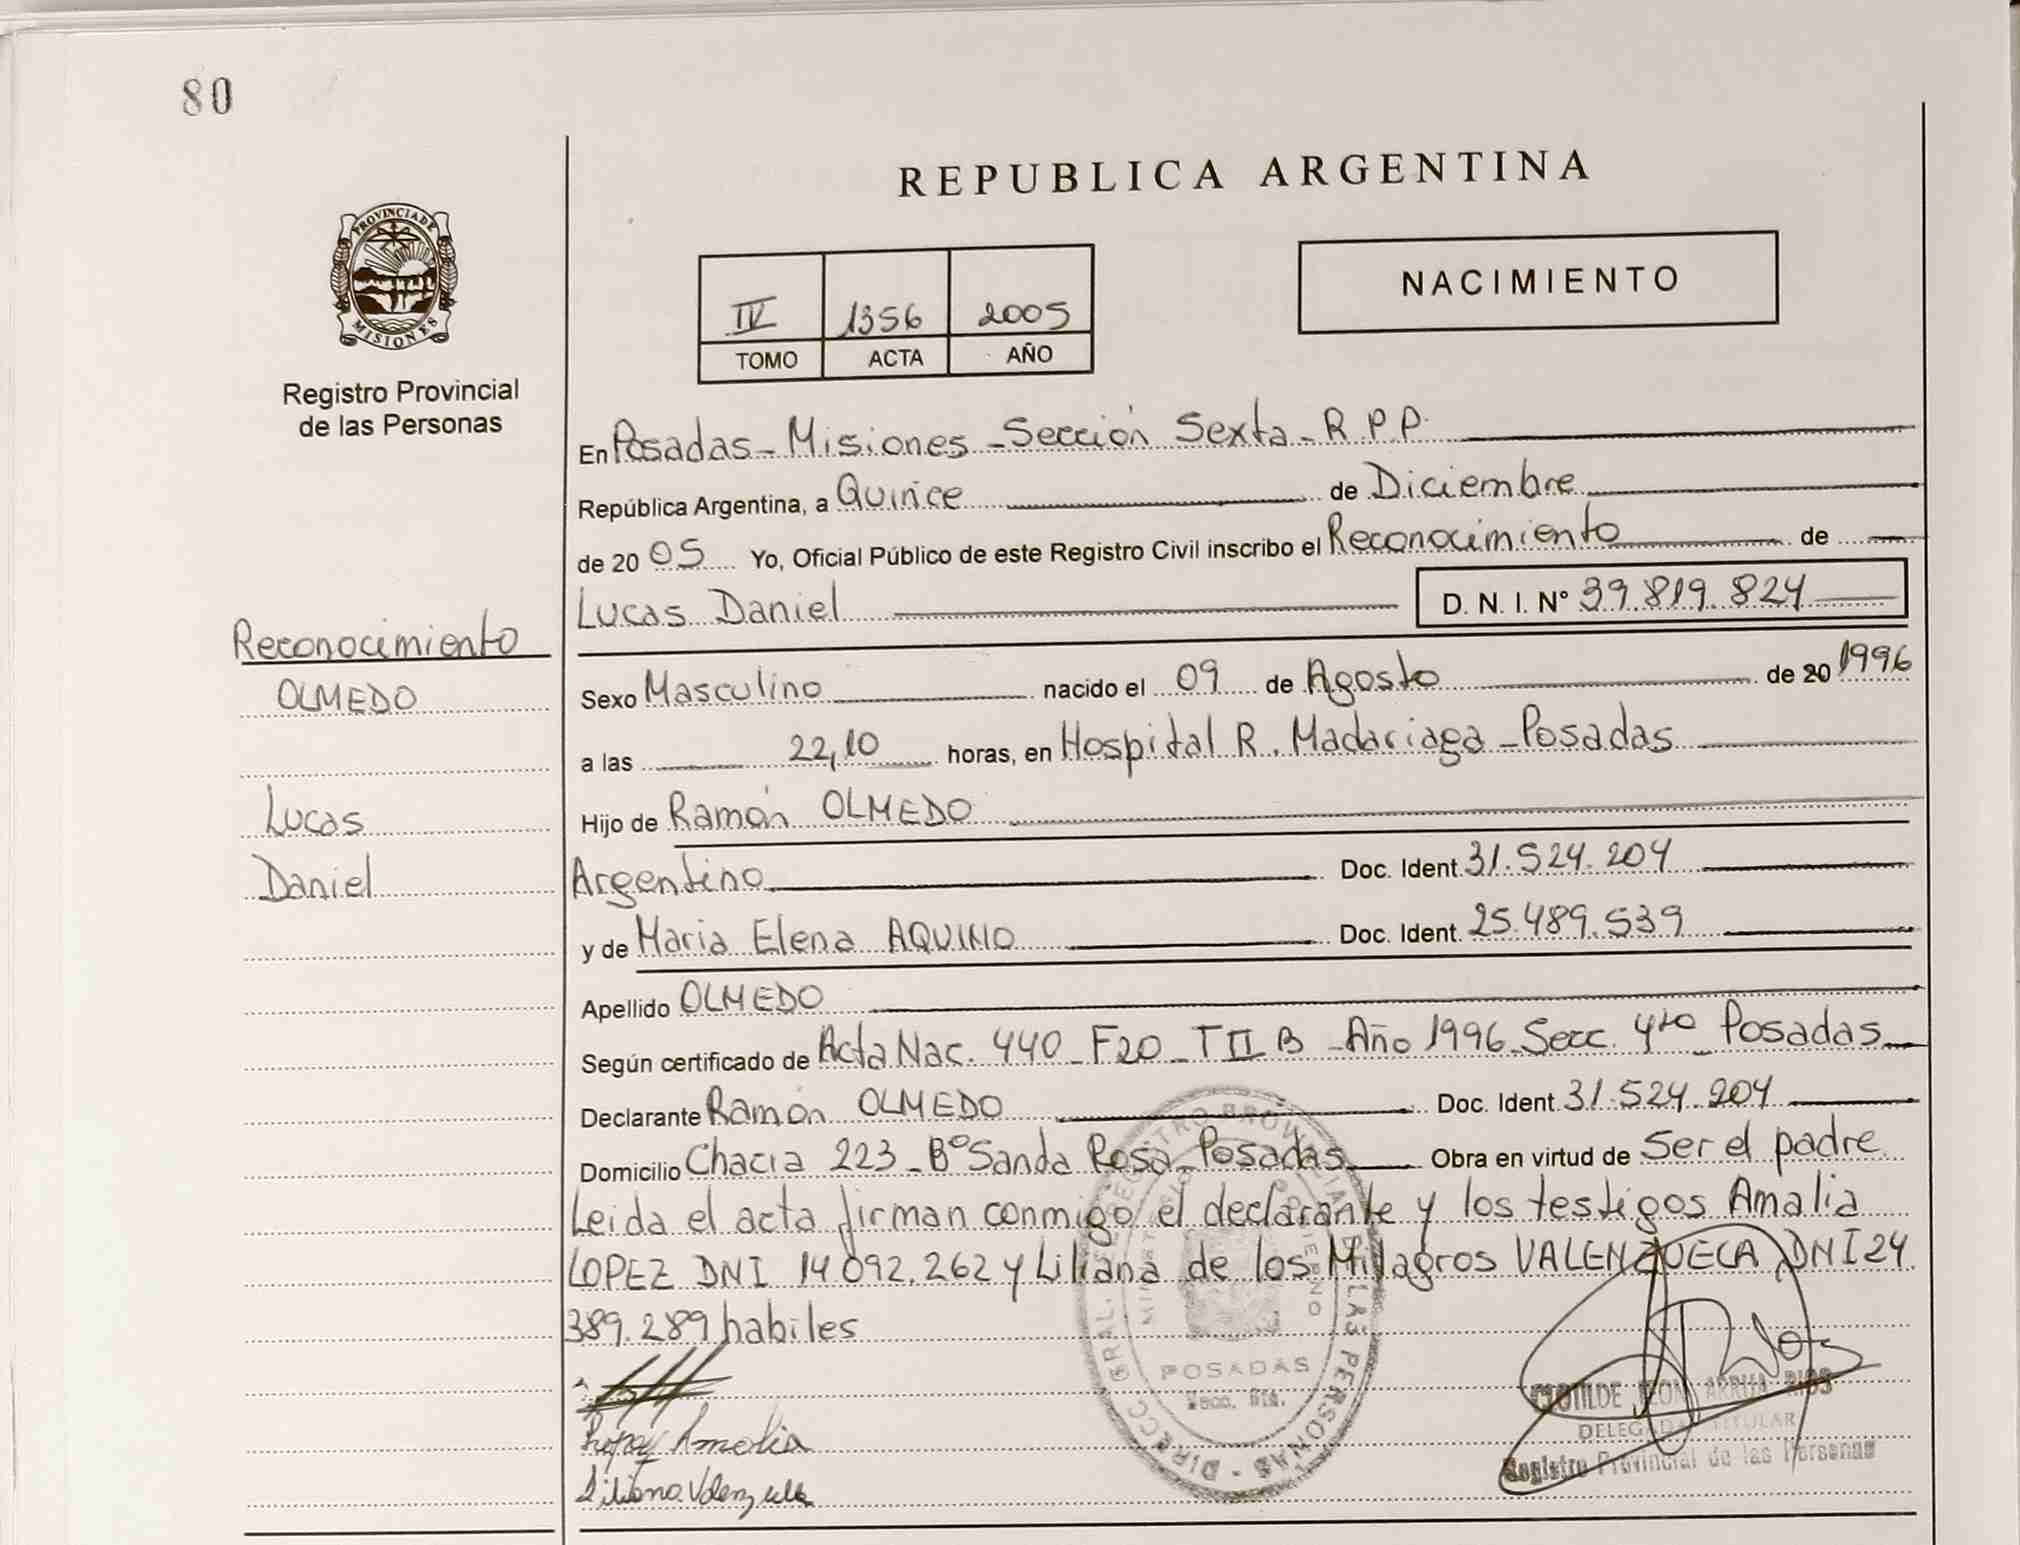 80
REPUBLICA ARGENTINA
PROVINCIA DE
MISIONES
Registro Provincial
de las Personas
IV 1356 2005
TOMO ACTA AÑO
NACIMIENTO
En Posadas - Misiones - Sección Sexta - R.P.P.
República Argentina, a Quince de Diciembre
de 20 05 Yo, Oficial Público de este Registro Civil inscribo el Reconocimiento de
Lucas Daniel D. N. I. Nº 39.819.824
Reconocimiento
OLMEDO
Lucas
Daniel
Sexo Masculino nacido el 09 de Agosto de 20 1996
a las 22,10 horas, en Hospital R. Madariaga - Posadas
Hijo de Ramón OLMEDO
Argentino Doc. Ident. 31.524.204
y de Maria Elena AQUINO Doc. Ident. 25.489.539
Apellido OLMEDO
Según certificado de Acta Nac. 440 - F20 - T II B - Año 1996 - Secc. 4ta - Posadas
Declarante Ramón OLMEDO Doc. Ident. 31.524.204
Domicilio Chacra 223 - Bº Santa Rosa - Posadas Obra en virtud de Ser el padre
Leida el acta firman conmigo el declarante y los testigos Amalia
LOPEZ DNI 14.092.262 y Liliana de los Milagros VALENZUELA DNI 24
389.289 habiles
Lopez Amalia
Liliana Valenzuela
DIRECC. GRAL. REGISTRO PROVINCIAL DE LAS PERSONAS
MINISTERIO GOBIERNO
POSADAS
Secc. 6ta.
CLOTILDE ARRUA RIOS
DELEGADA TITULAR
Registro Provincial de las Personas